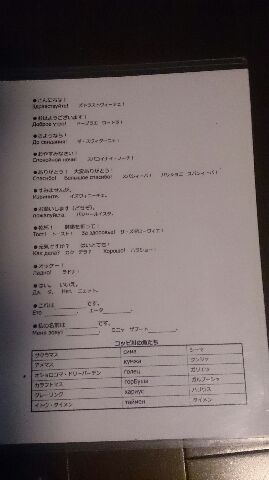 ●こんにちは!
Здравствуйте! ズドラストヴィーチェ!
●おはようございます!
Доброе утро! ドーブラエ ウートラ!
●さようなら!
До свидания! ダ・スヴィダーニャ!
●おやすみなさい!
Спокойной ночи! スパコイナイ・ノーチ!
●ありがとう! 大変ありがとう!
Спасибо! Большое спасибо! スパシーバ! バリショエ スパシーバ!
●すみません。
Извините. イズヴィニーチェ。
●お願いします(どうぞ)。
пожалуйста. パジャールイスタ。
●乾杯! 健康を祈って!
Тост! トースト! За здоровье! ザ・ズダローヴィエ!
●元気ですか? はいとても!
Как дела? カク デラ? Хорошо! ハラショー!
●オッケー!
Ладно! ラドナ!
●はい。 いいえ。
Да. ダ。 Нет. ニェット。
●これは ________ です。
Это ________. エータ________。
●私の名前は ________ です。
Меня зовут ________. ミニャ ザブート________。
コッピ川の魚たち
サクラマス сима シーマ
アメマス кунжа クンジャ
オショロコマ・ドリーバーデン голец ガリェツ
カラフトマス горбуша ガルブーシャ
グレーリング хариус ハリウス
イトウ・タイメン таймен タイメン